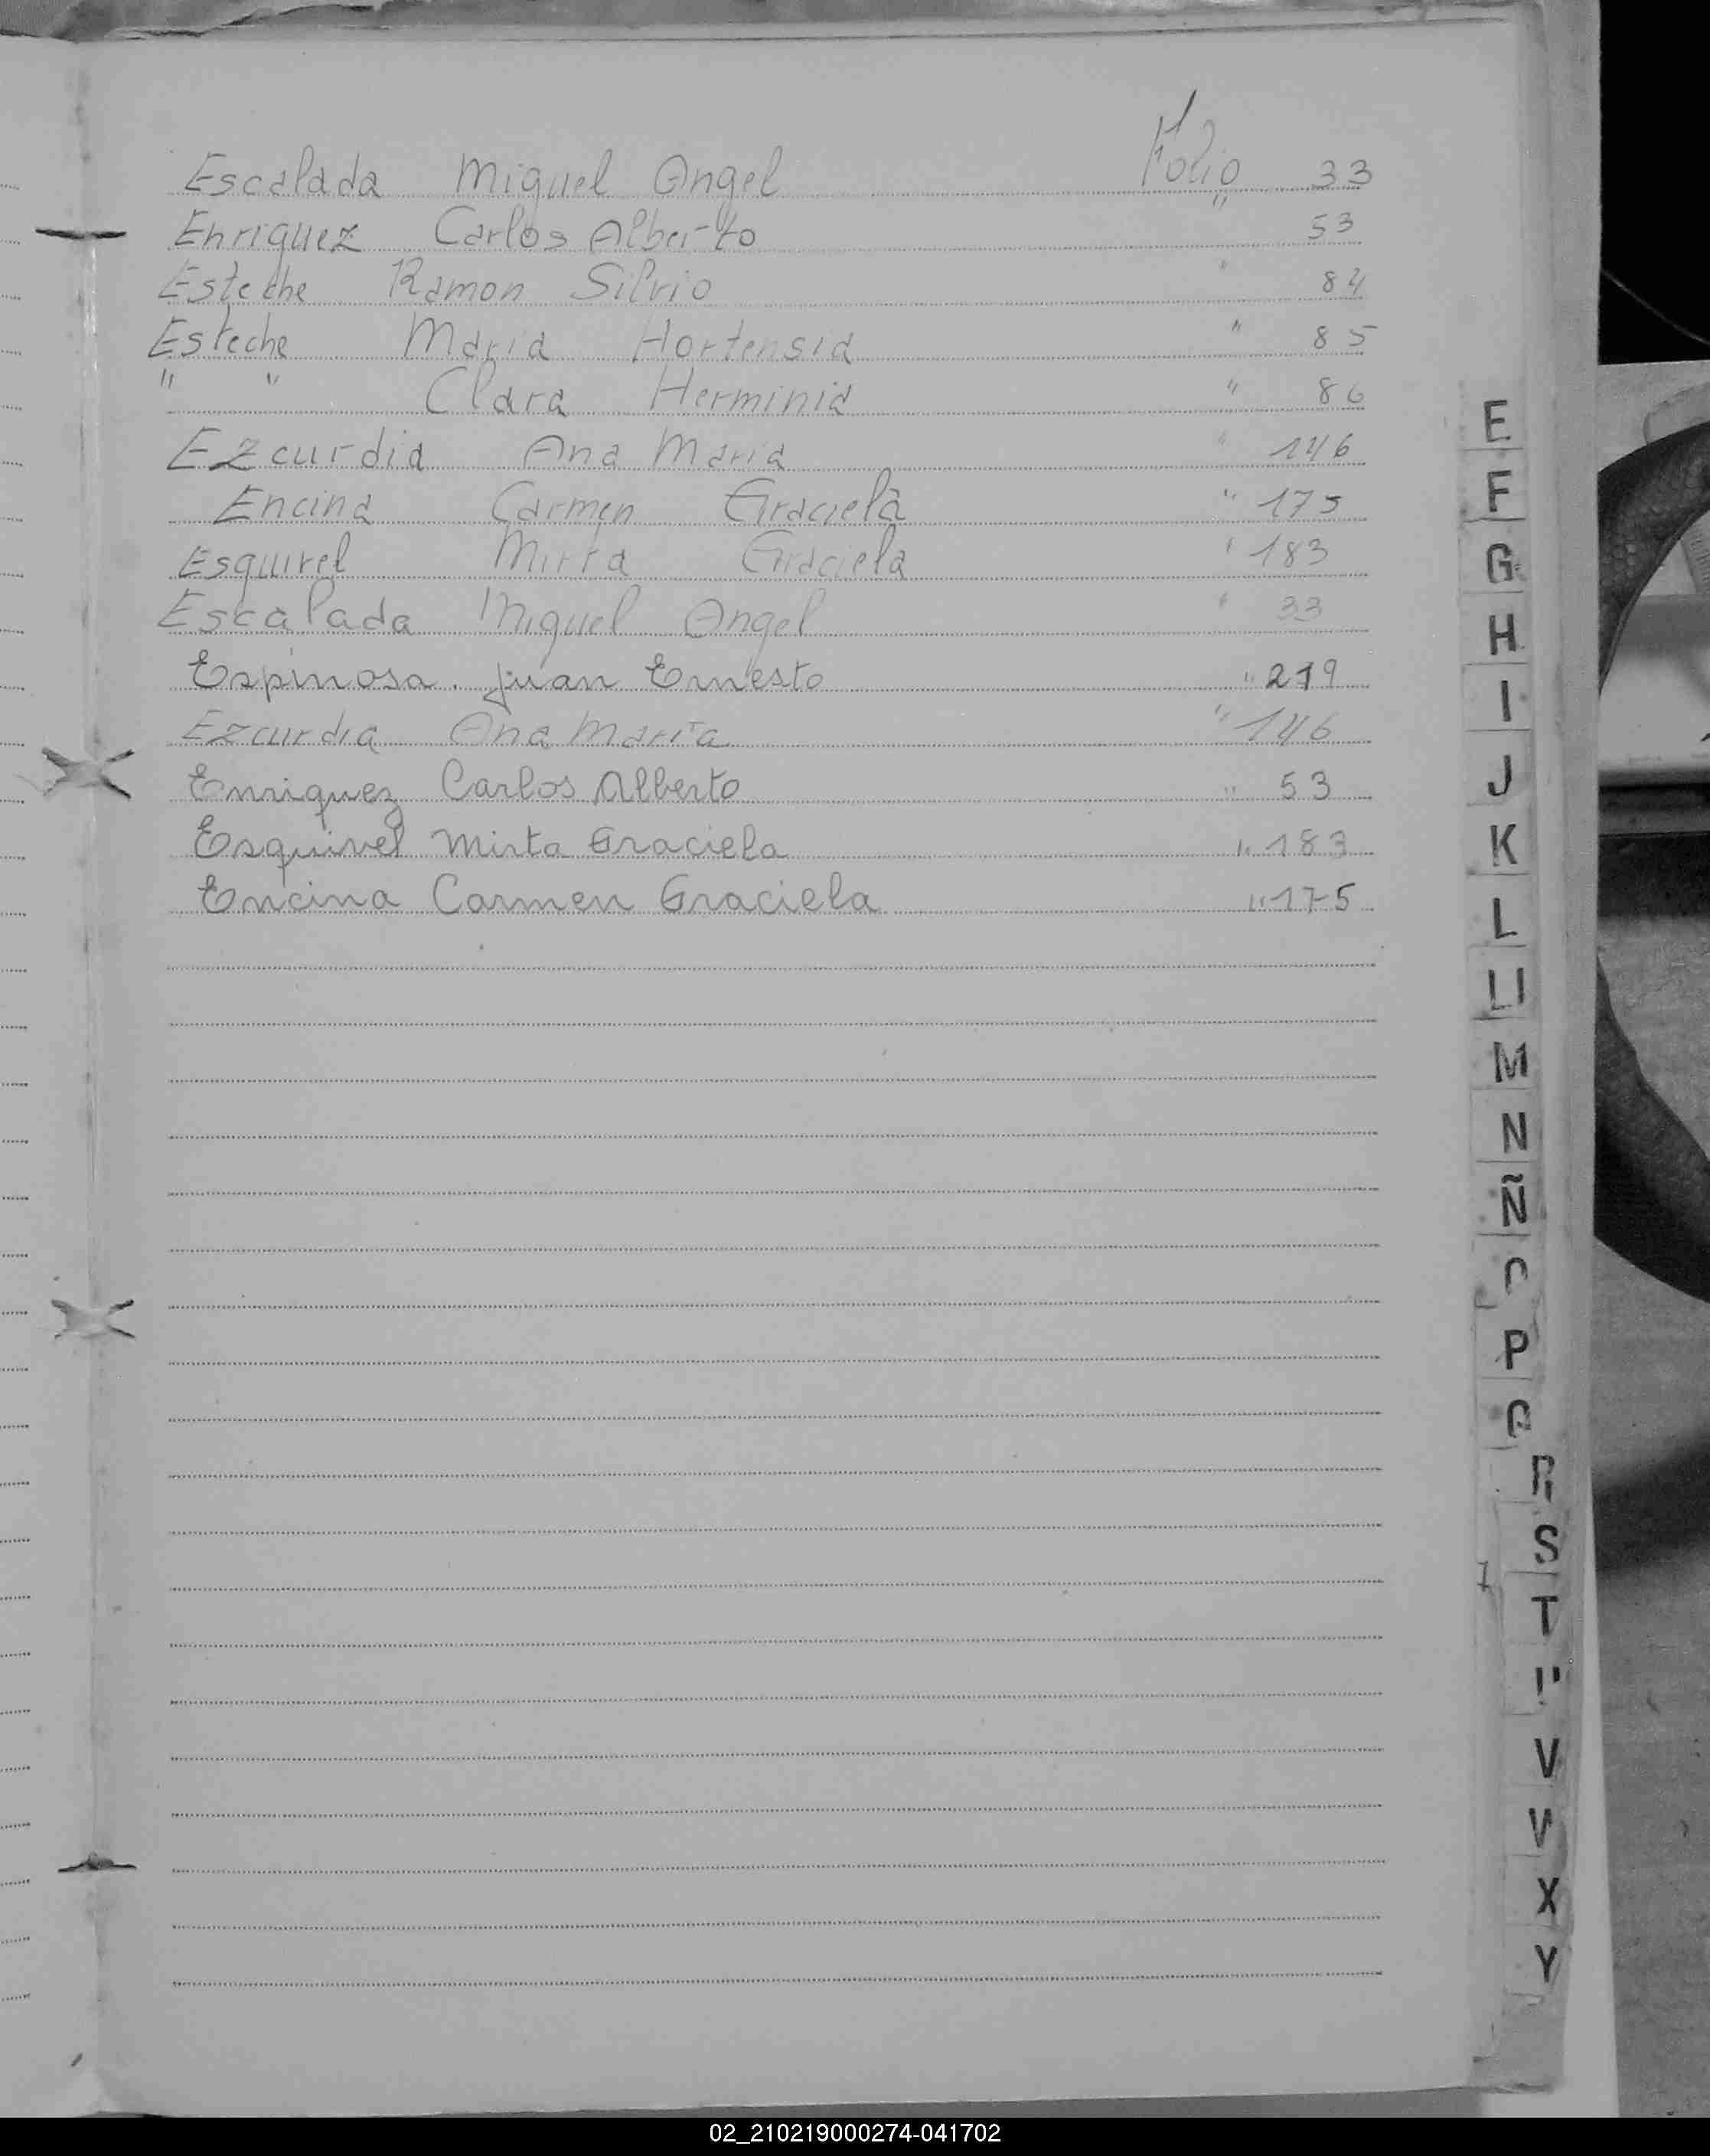 Escalada Miguel Angel Folio 33
Enriquez Carlos Alberto " 53
Esteche Ramon Silvio " 84
Esteche Maria Hortensia " 85
" " Clara Herminia " 86
Ezcurdia Ana Maria " 146
Encina Carmen Graciela " 175
Esquivel Mirta Graciela " 183
Escalada Miguel Angel " 33
Espinosa. Juan Ernesto " 219
Ezcurdia Ana María " 146
Enriquez Carlos Alberto " 53
Esquivel Mirta Graciela " 183
Encina Carmen Graciela " 175
E
F
G
H
I
J
K
L
M
N
Ñ
O
P
Q
R
S
T
V
W
X
Y
02_210219000274-041702